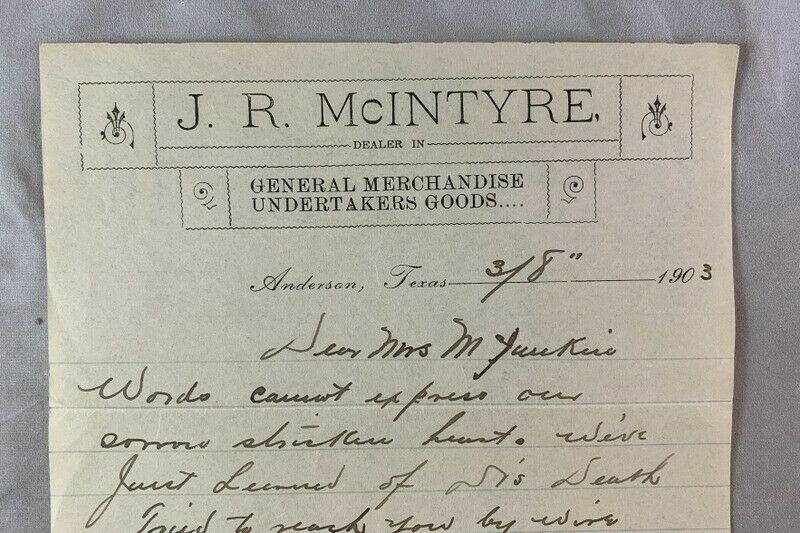 J. R. McINTYRE,
DEALER IN
GENERAL MERCHANDISE
UNDERTAKERS GOODS....
Anderson, Texas 3/8" 1903
Dear Mrs M Junkin
Words cannot express our
sorrow stricken hearts. We've
Just Learned of Death
Tried to reach you by wire